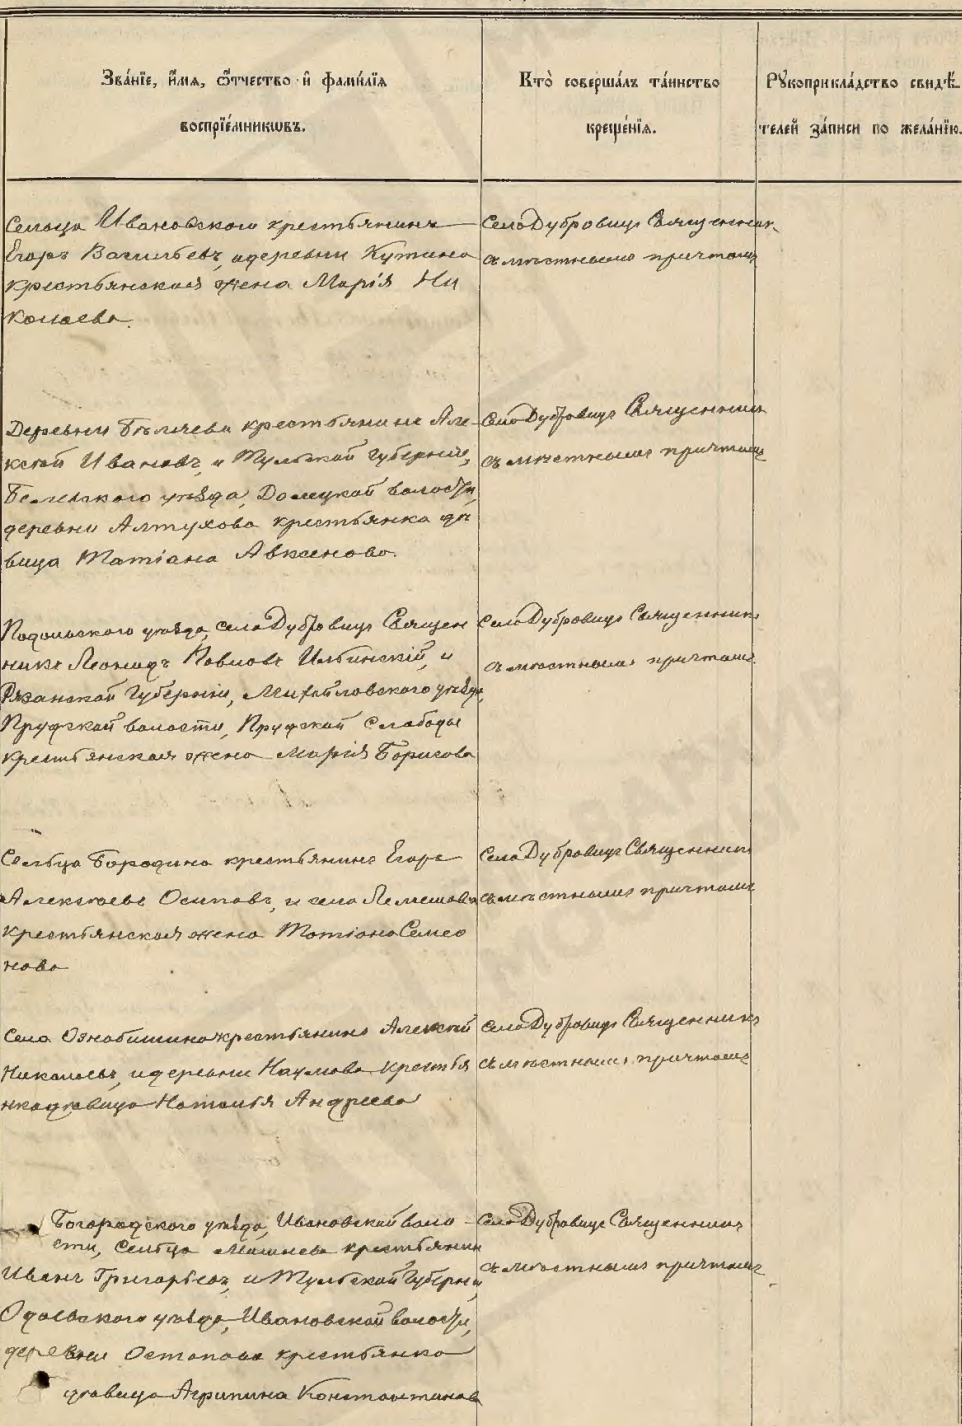 Зва́нїе, и҆́мѧ, ѻ҆́тчество и҆ фамі́лїѧ
воспрїе́мникѡвъ.
Кто̀ соверша́лъ та́инство
креще́нїѧ.
Рꙋкоприкла́дство свидѣ́-
телей за́писи по жела́нїю.
Сельца Ивановскаго крестьянинъ
Егоръ Васильевъ, и деревни Кутьина
крестьянская жена Марія Ни
колаева.
Села Дубровицъ Священникъ
съ мѣстнымъ причтомъ
Деревни Бѣляева крестьянинъ Але-
ксѣй Ивановъ, и Тульской губерніи,
Белевскаго уѣзда, Долецкой волости,
деревни Алтухова крестьянка дѣ
вица Татіана Авксенова.
Села Дубровицъ Священникъ
съ мѣстнымъ причтомъ
Подольскаго уѣзда, села Дубровицъ Священ
никъ Леонидъ Павловъ Ильинскій, и
Рязанской Губерніи, Михайловскаго уѣзда,
Прудской волости, Прудской Слободы
крестьянская жена Марія Борисова
Села Дубровицъ Священникъ
съ мѣстнымъ причтомъ
Сельца Бородина крестьянинъ Егоръ
Алексѣевъ Осиповъ, и села Лемешова
крестьянская жена Татіана Симео
нова
Села Дубровицъ Священникъ
съ мѣстнымъ причтомъ
Села Ознобишина крестьянинъ Алексѣй
Николаевъ, и деревни Наумова крестья
нка дѣвица Наталья Андреева
Села Дубровицъ Священникъ
съ мѣстнымъ причтомъ
Богородскаго уѣзда, Ивановской воло-
сти, Сельца крестьянинъ
Иванъ Григорьевъ, и Тульской Губерніи
Одоевскаго уѣзда, Ивановской волости,
деревни Остапова крестьянка
дѣвица Агрипина Константинова
Села Дубровицъ Священникъ
съ мѣстнымъ причтомъ